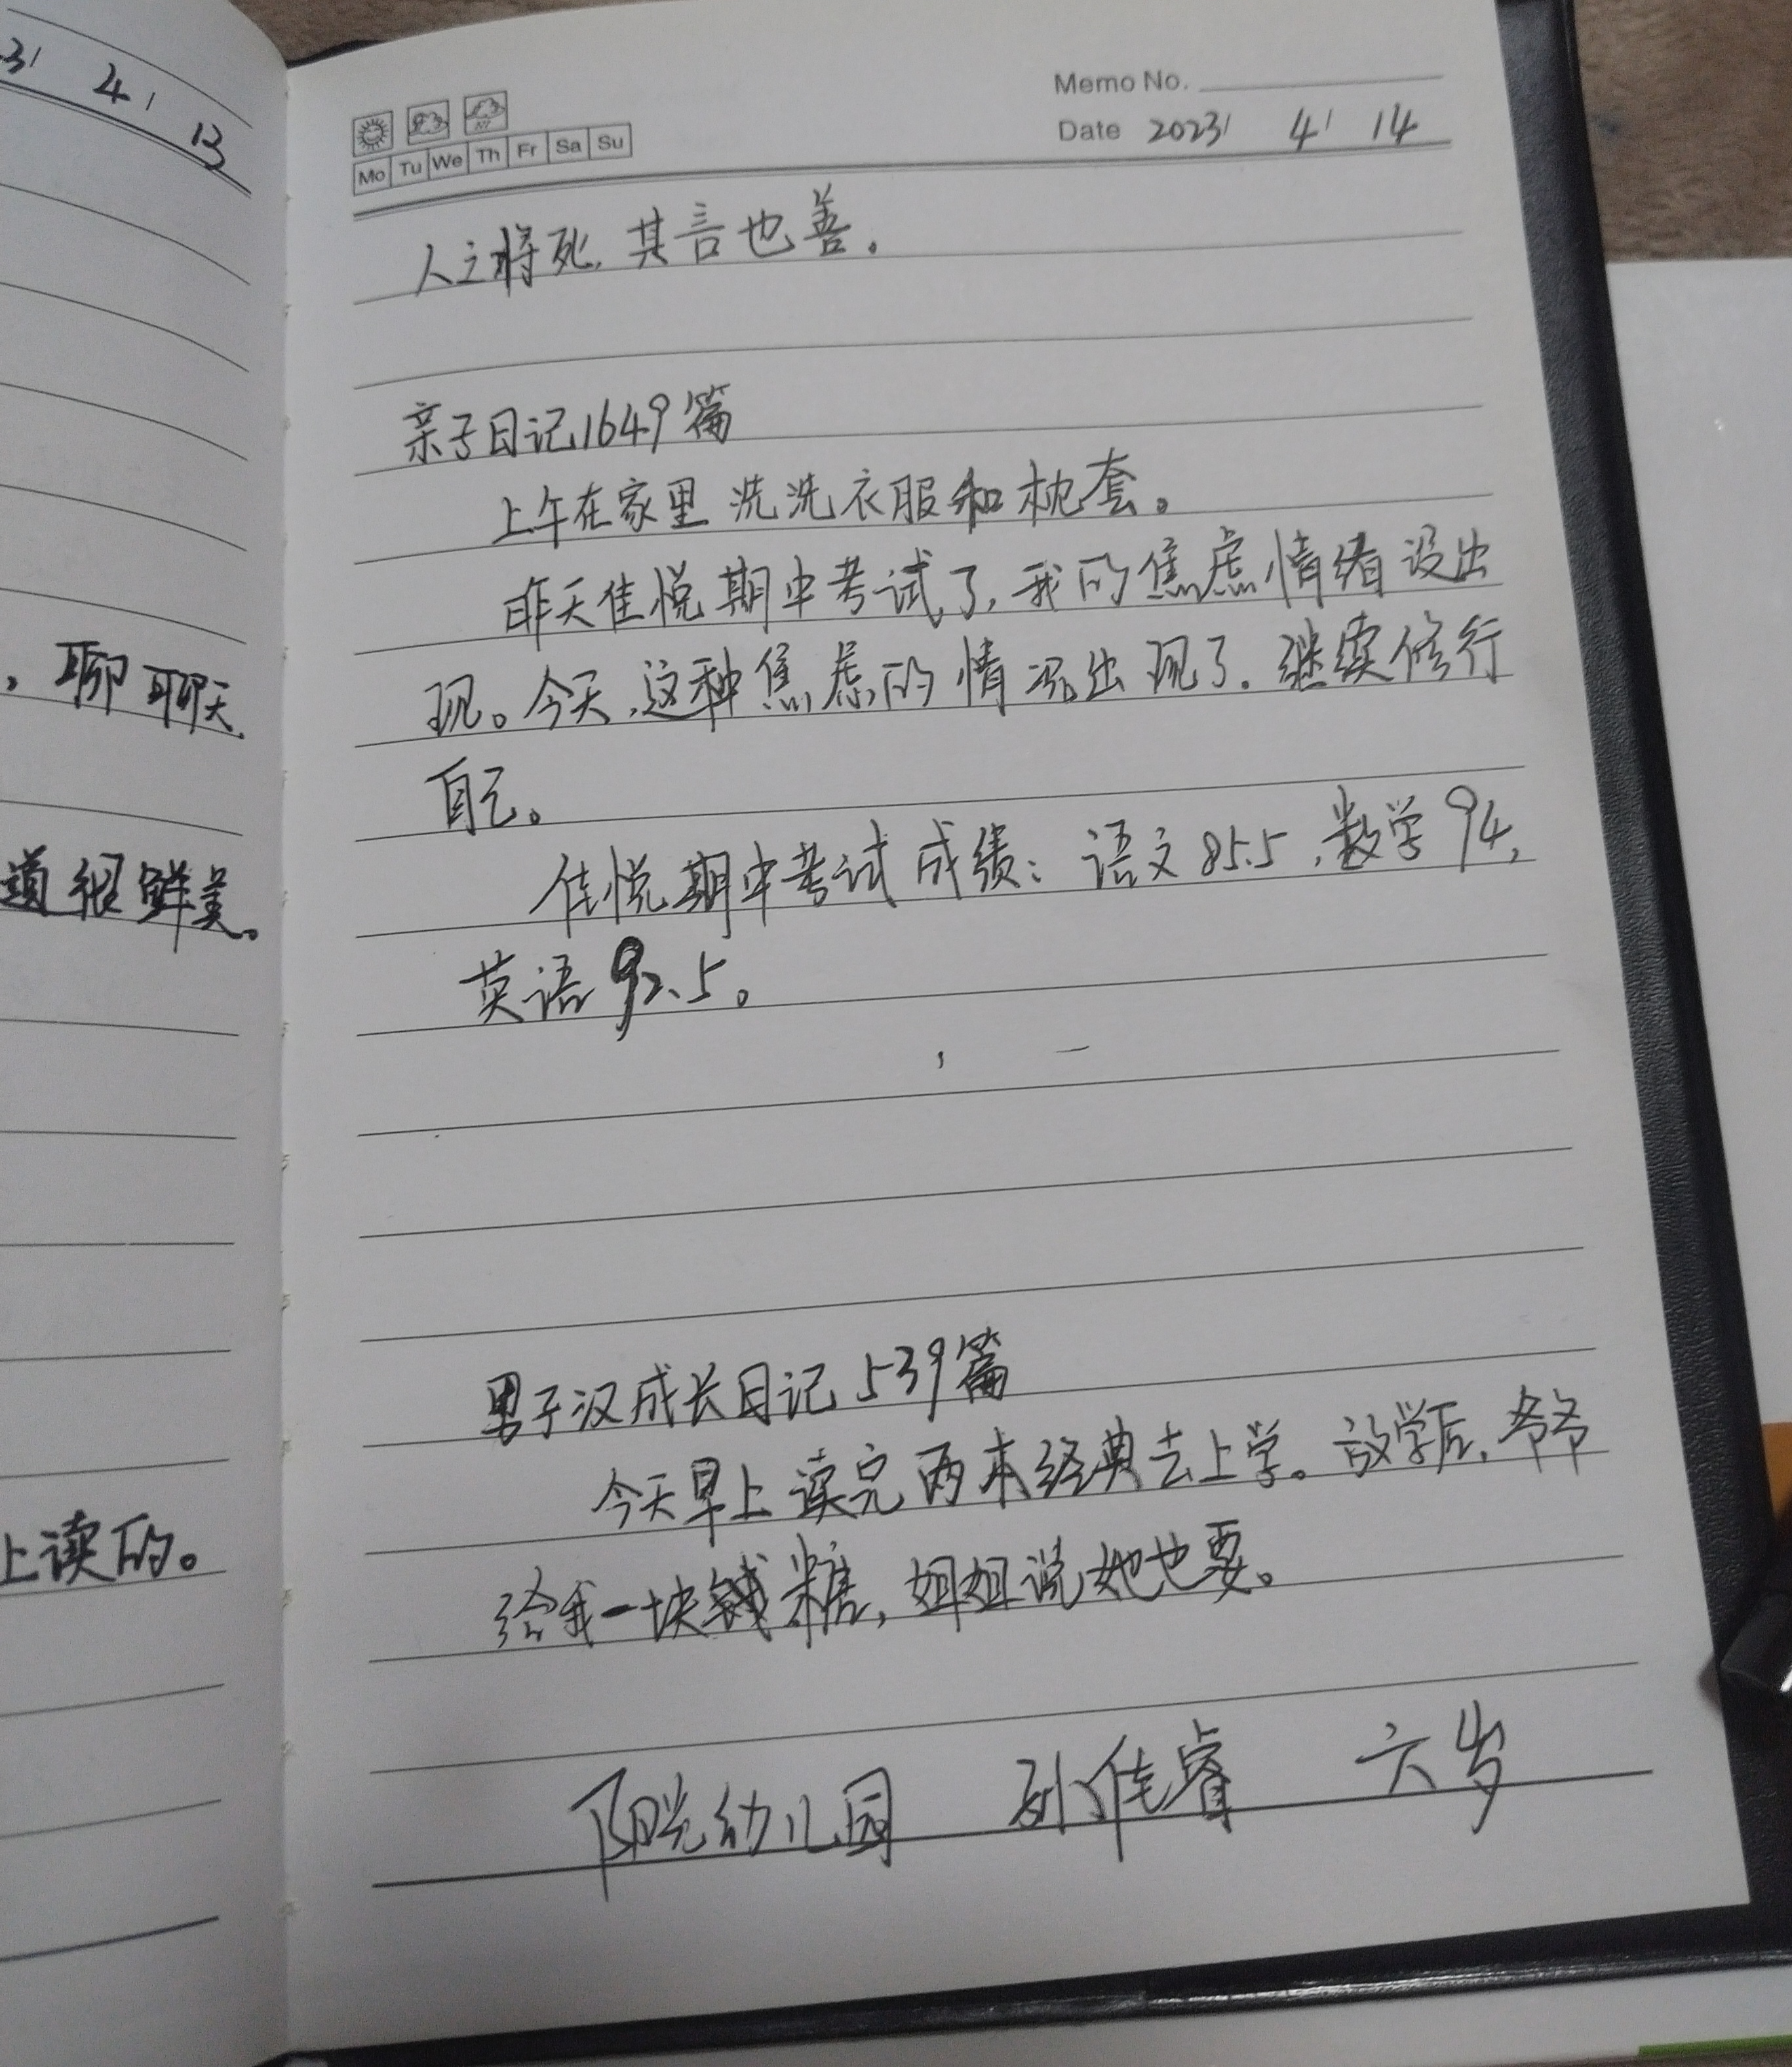 31 4 13
，聊聊天.
道很鲜美。
上读的。
Memo No.
Date 2023 4 14
Mo Tu We Th Fr Sa Su
人之将死，其言也善。
亲子日记1649篇
上午在家里洗洗衣服和枕套。
昨天佳悦期中考试了，我的焦虑情绪没出
现。今天，这种焦虑的情况出现了.继续修行
自己。
佳悦期中考试成绩：语文85.5，数学94，
英语92.5。
男子汉成长日记539篇
今天早上读完两本经典去上学。放学后，爷爷
给我一块钱糖，姐姐说她也要。
阳光幼儿园 孙佳睿 六岁